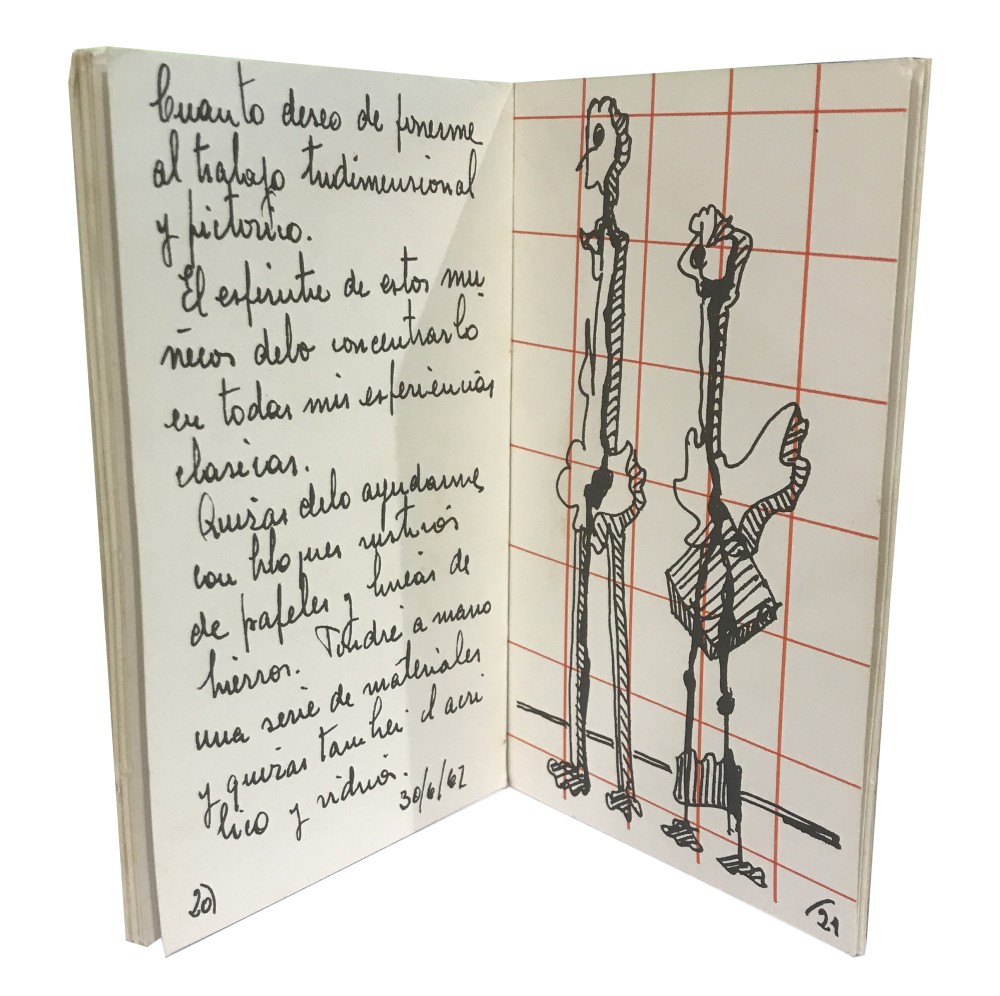 Cuanto deseo de ponerme
al trabajo tridimensional
y pictorico.
El espiritu de estos mu
ñecos debo concentrarlo
en todas mis experiencias
clasicas.
Quizas debo ayudarme
con bloques rusticos
de papeles y lineas de
hierros. Tendre a mano
una serie de materiales
y quizas tambien el acri
lico y vidrios.
30/6/62
20)
/21